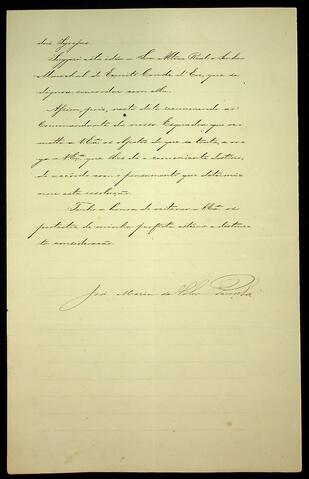 das Igrejas.
Suggeri esta idéa a Sua Alteza Real o Senhor
Marechal de Exercito Conde d'Eu, que se
dignou concordar com ella.
Assim, pois, nesta data recommendo ao
Commandante da nossa Esquadra, que re-
metta a V.Exª. os objectos de que se trata, e ro-
go a V.Exª. que lhes dê o conveniente destino,
de accôrdo com o pensamento que determi-
nou esta resolução.
Tenho a honra de reiterar a V.Exª. os
protestos de minha perfeita estima e distinc-
ta consideração.
José Maria da Silva Paranhos